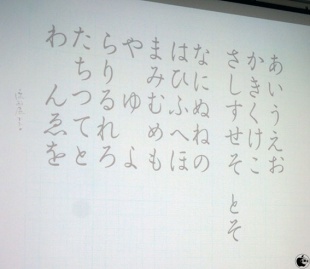 あいうえお
かきくけこ
さしすせそ とそ
なにぬねの
はひふへほ
まみむめも
や ゆ よ
らりるれろ
たちつてと
わ んゑを